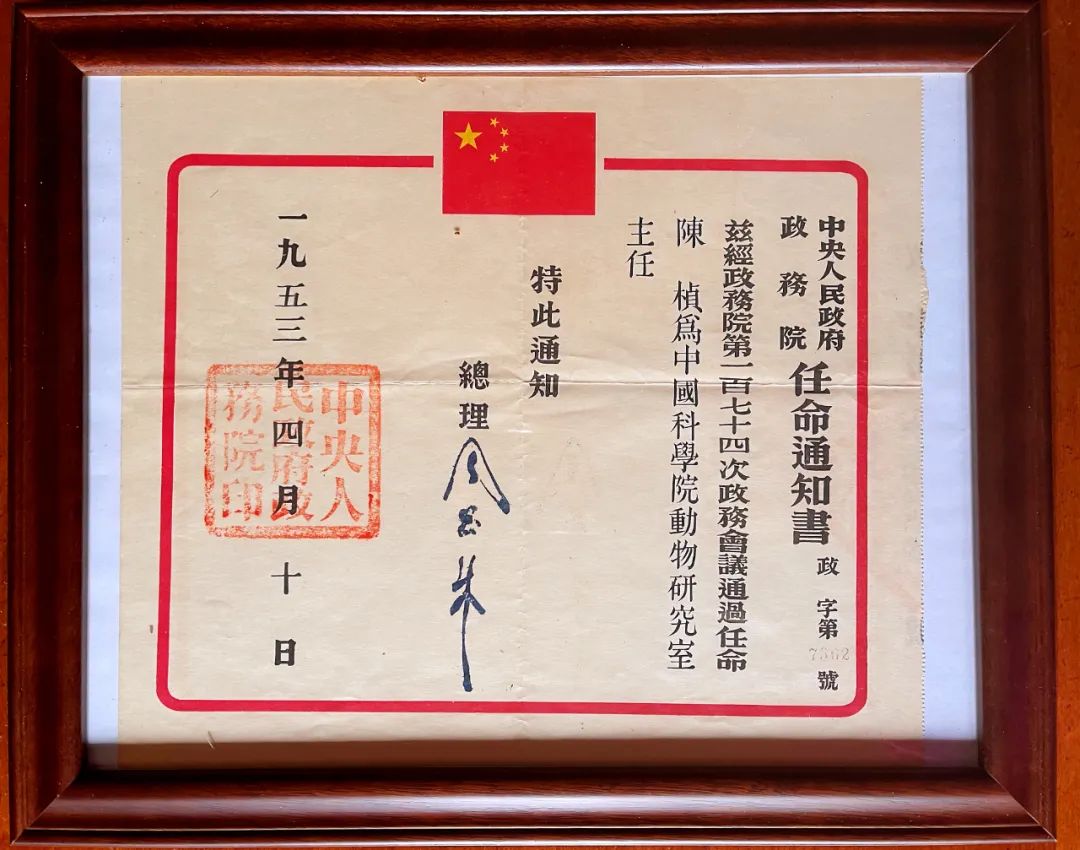 中央人民政府
政務院
任命通知書
政字第7362號
茲經政務院第一百七十四次政務會議通過任命
陳楨爲中國科學院動物研究室
主任
特此通知
總理
周恩來
一九五三年四月十日
中央人
民政府政
務院印